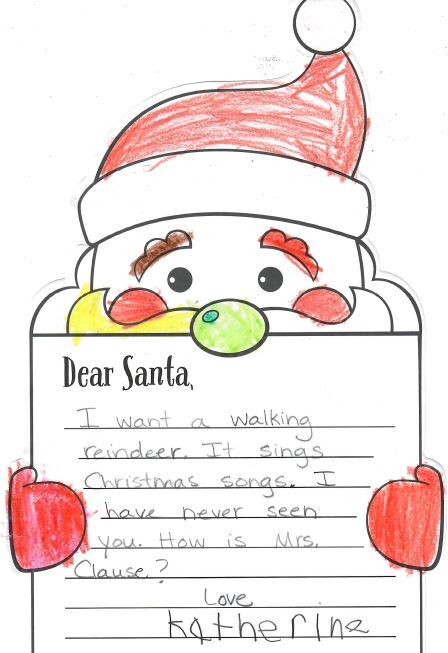 Dear Santa,
I want a walking
reindeer. It sings
Christmas songs. I
have never seen
you. How is Mrs.
Clause?
Love
Katherine